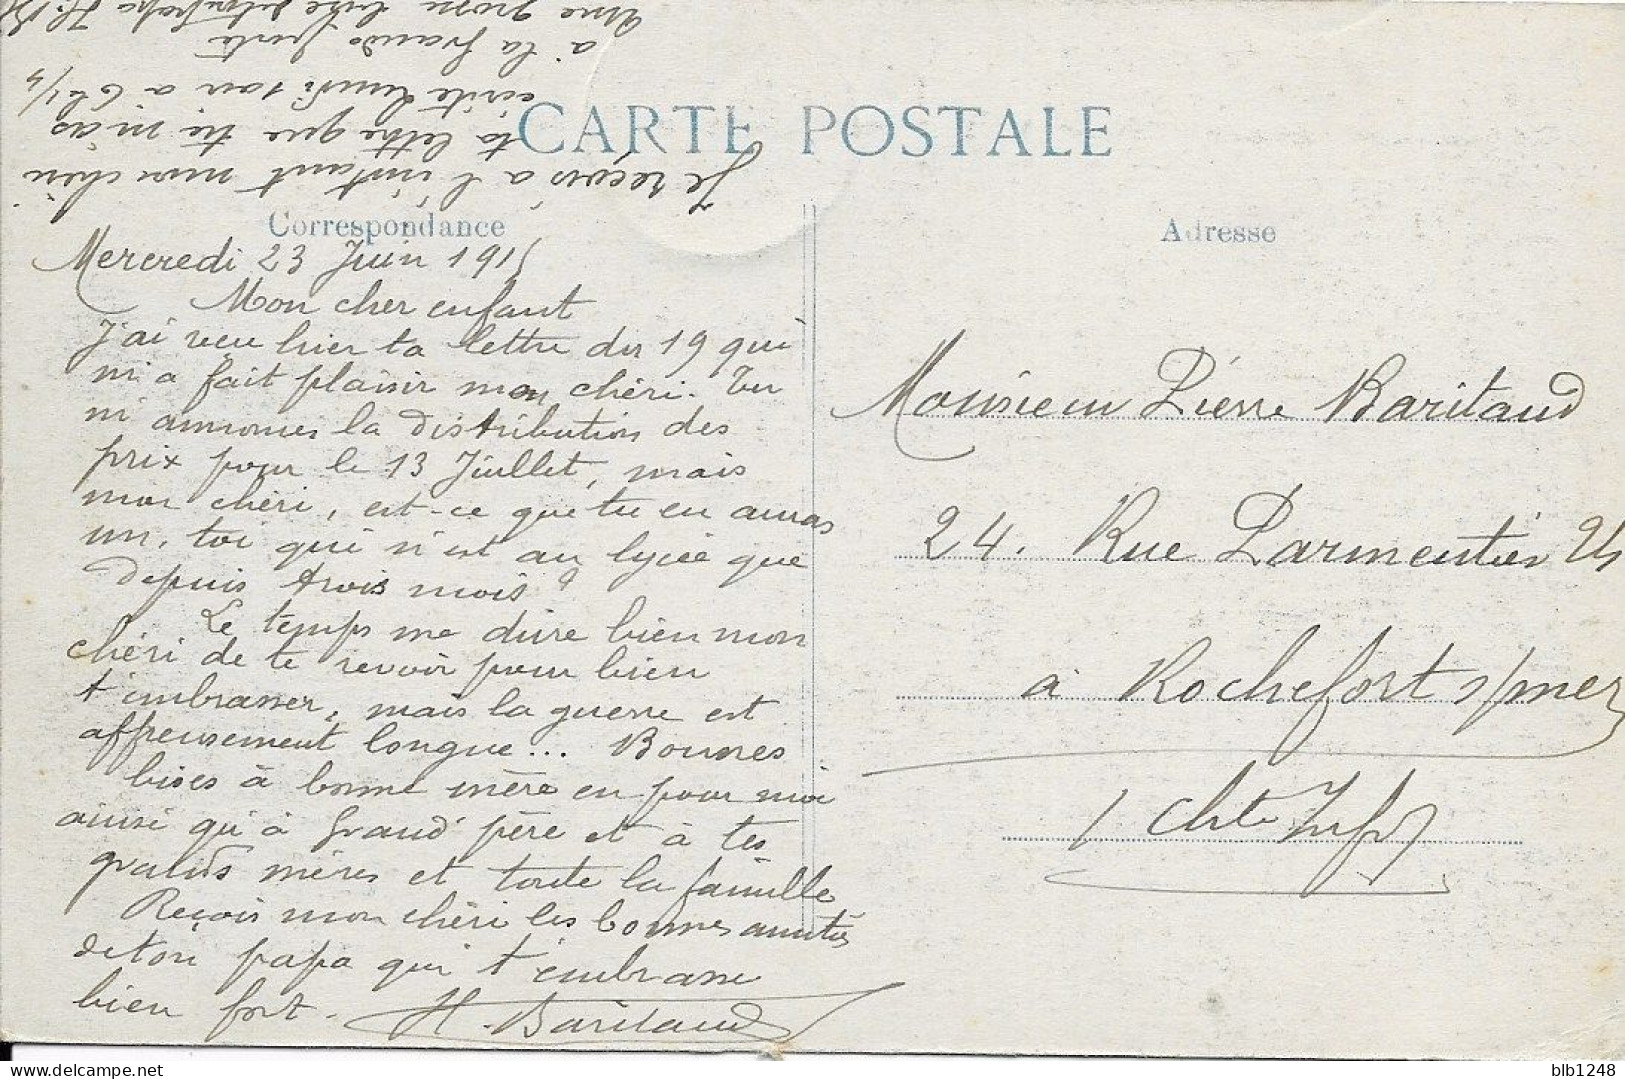 Je reçois à l'instant mon chéri
ta lettre que tu m'as
écrite lundi soir à 6h 1/4
à la grande poste
Une grosse bise de ton papa H. B
CARTE POSTALE
Correspondance
Adresse
Mercredi 23 Juin 1915
Mon cher enfant
J'ai reçu hier ta lettre du 19 qui
m'a fait plaisir mon chéri. Tu
m'annonces la distribution des
prix pour le 13 Juillet, mais
mon chéri, est-ce que tu en auras
un, toi qui n'est au lycée que
depuis trois mois ?
Le temps me dure bien mon
chéri de te revoir pour bien
t'embrasser, mais la guerre est
affreusement longue... Bonnes
bises à bonne mère en pour moi
ainsi qu'à grand père et à tes
grands mères et toute la famille
Reçois mon chéri les bonnes amitiés
de ton papa qui t'embrasse
bien fort. H. Baritaud
Monsieur Pierre Baritaud
24. Rue Parmentier 24
à Rochefort s/mer
Chte Infre
blb1248